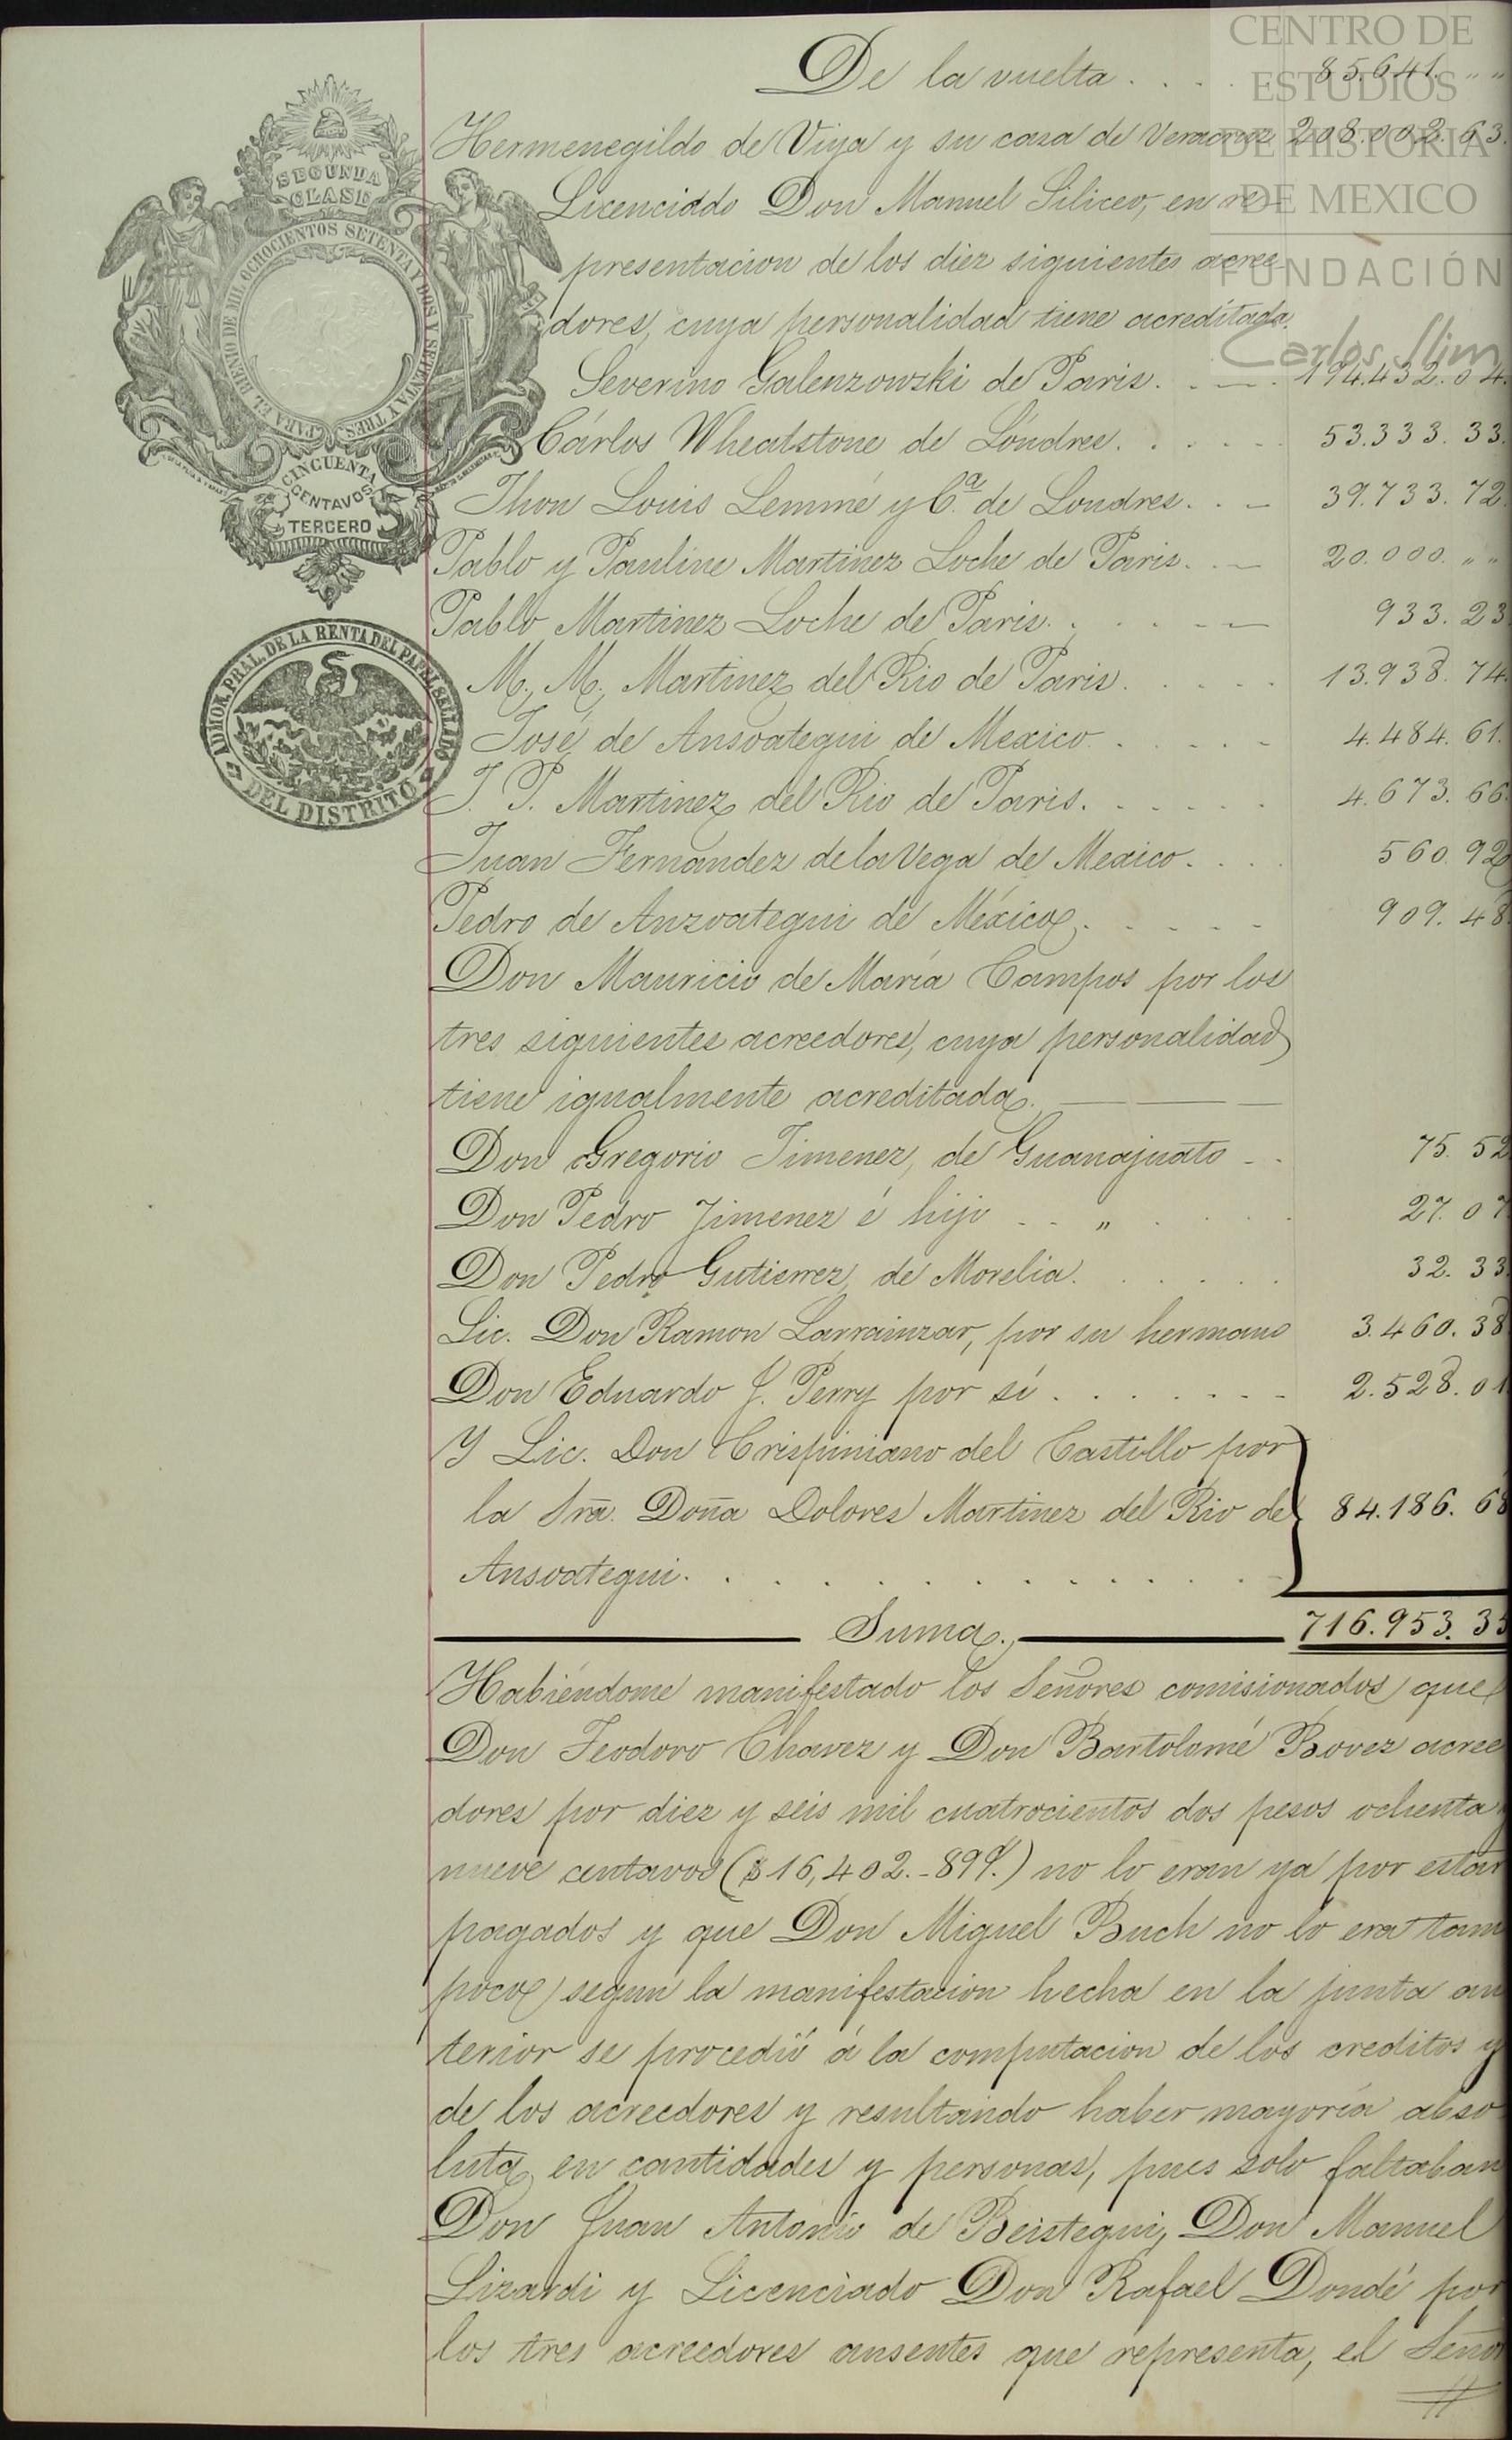 CENTRO DE
ESTUDIOS
DE HISTORIA
DE MEXICO
FUNDACIÓN
Carlos Slim
SEGUNDA
CLASE
PARA EL BIENIO DE MIL OCHOCIENTOS SETENTA Y DOS Y SETENTA Y TRES
CINCUENTA
CENTAVOS
TERCERO
ADMON. PRAL. DE LA RENTA DEL PAPEL SELLADO
DEL DISTRITO
De la vuelta . . . . 85.641. " "
Hermenegildo de Viya y su casa de Veracruz 208.002.63.
Licenciado Don Manuel Siliceo, en re-
presentacion de los diez siguientes acree-
dores, cuya personalidad tiene acreditada.
Severino Galenzowski de Paris. . — . 194.432.04.
Cárlos Wheatstone de Lóndres. . . . . . 53.333.33.
Jhon Louis Lemmé y Cª. de Londres. . — 39.733.72.
Pablo y Pauline Martinez Loche de Paris. . — 20.000. " "
Pablo Martinez Loche de Paris. . . . — 933.23.
M. M. Martinez del Rio de Paris. . . . . 13.938.74.
José de Ansoategui de Mexico . . . . . 4.484.61.
J. P. Martinez del Rio de Paris. . . . . . 4.673.66.
Juan Fernandez de la Vega de Mexico. . . . 560.92
Pedro de Anzoategui de México. . . . . . 909.48.
Don Mauricio de María Campos por los
tres siguientes acreedores, cuya personalidad
tiene igualmente acreditada. — — —
Don Gregorio Jimenez, de Guanajuato - . 75.52
Don Pedro Jimenez é hijo . . " . . . . 27.07
Don Pedro Gutierrez, de Morelia. . . . . . 32.33.
Lic. Don Ramon Larrainzar, por su hermano 3.460.38
Don Eduardo J. Perry por sí . . . . . . . 2.528.01
Y Lic. Don Crispiniano del Castillo por
la Sra. Doña Dolores Martinez del Rio de 84.186.68
Ansoategui. . . . . . . . . . .
Suma. 716.953.35
Habiéndome manifestado los Señores comisionados que
Don Teodoro Chavez y Don Bartolomé Bovez acree
dores por diez y seis mil cuatrocientos dos pesos ochenta y
nueve centavos ($16,402.-89¢.) no lo eran ya por estar
pagados y que Don Miguel Buch no lo era tam
poco segun la manifestacion hecha en la junta an
terior se procedió á la computacion de los creditos y
de los acreedores y resultando haber mayoría abso
luta en cantidades y personas, pues solo faltaban
Don Juan Antonio de Beistegui, Don Manuel
Lizardi y Licenciado Don Rafael Dondé por
los tres acreedores ausentes que representa, el Señor